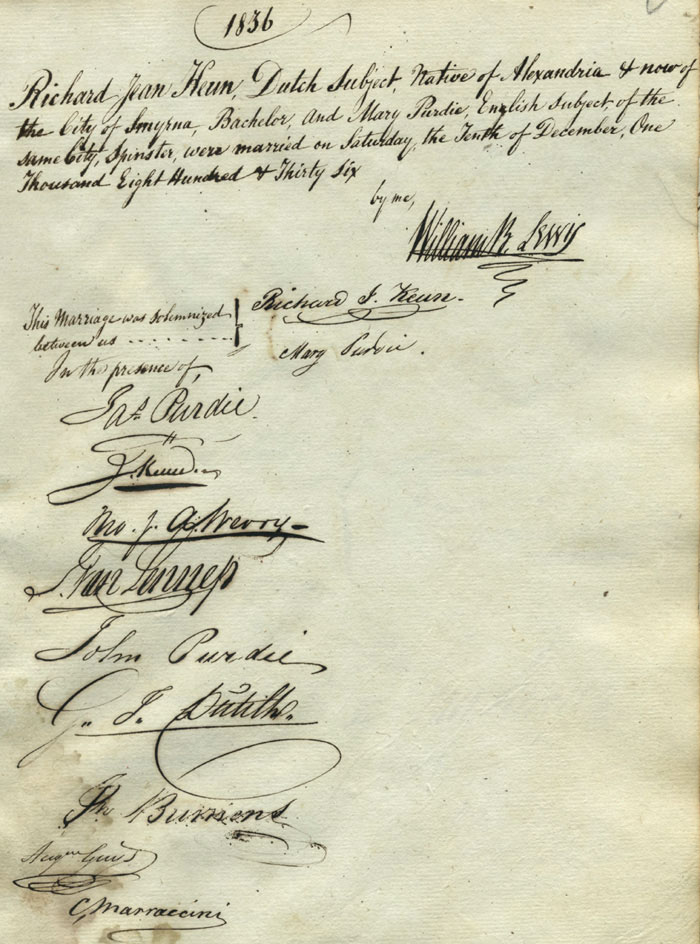 1836
Richard Jean Keun, Dutch Subject, Native of Alexandria & now of
the City of Smyrna, Bachelor, and Mary Purdie, English Subject, of the
same City, Spinster, were married on Saturday, the Tenth of December, One
Thousand Eight Hundred & Thirty Six
by me,
William B. Lewis
This Marriage was solemnized
between us . . . . . . . .
Richard J. Keun.
Mary Purdie.
In the presence of,
Jas. Purdie.
J. Keun
Van Lennep
John Purdie
G. J. Dutilh.
C, Marraccini